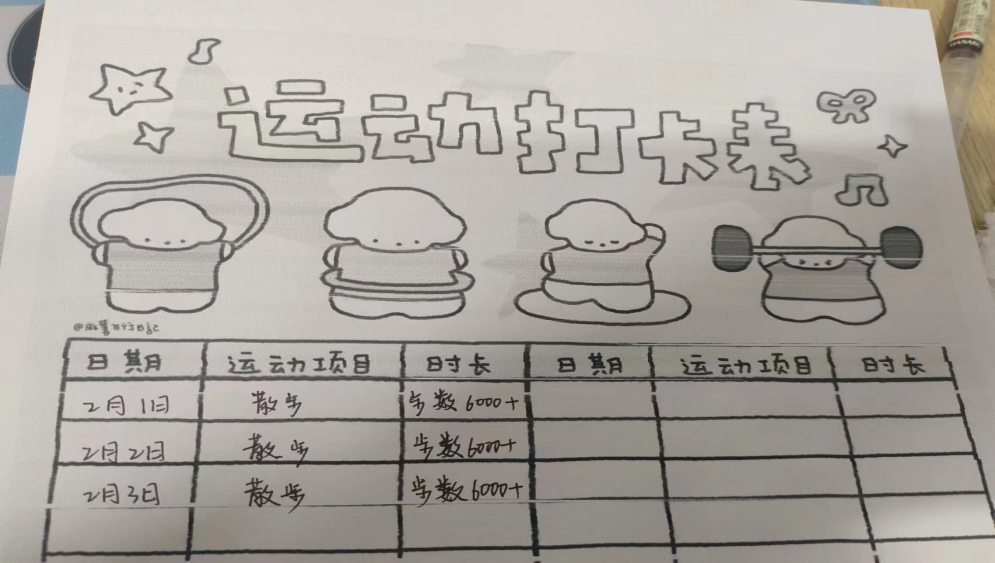 运动打卡表
日期 运动项目 时长 日期 运动项目 时长
2月1日 散步 步数6000+
2月2日 散步 步数6000+
2月3日 散步 步数6000+